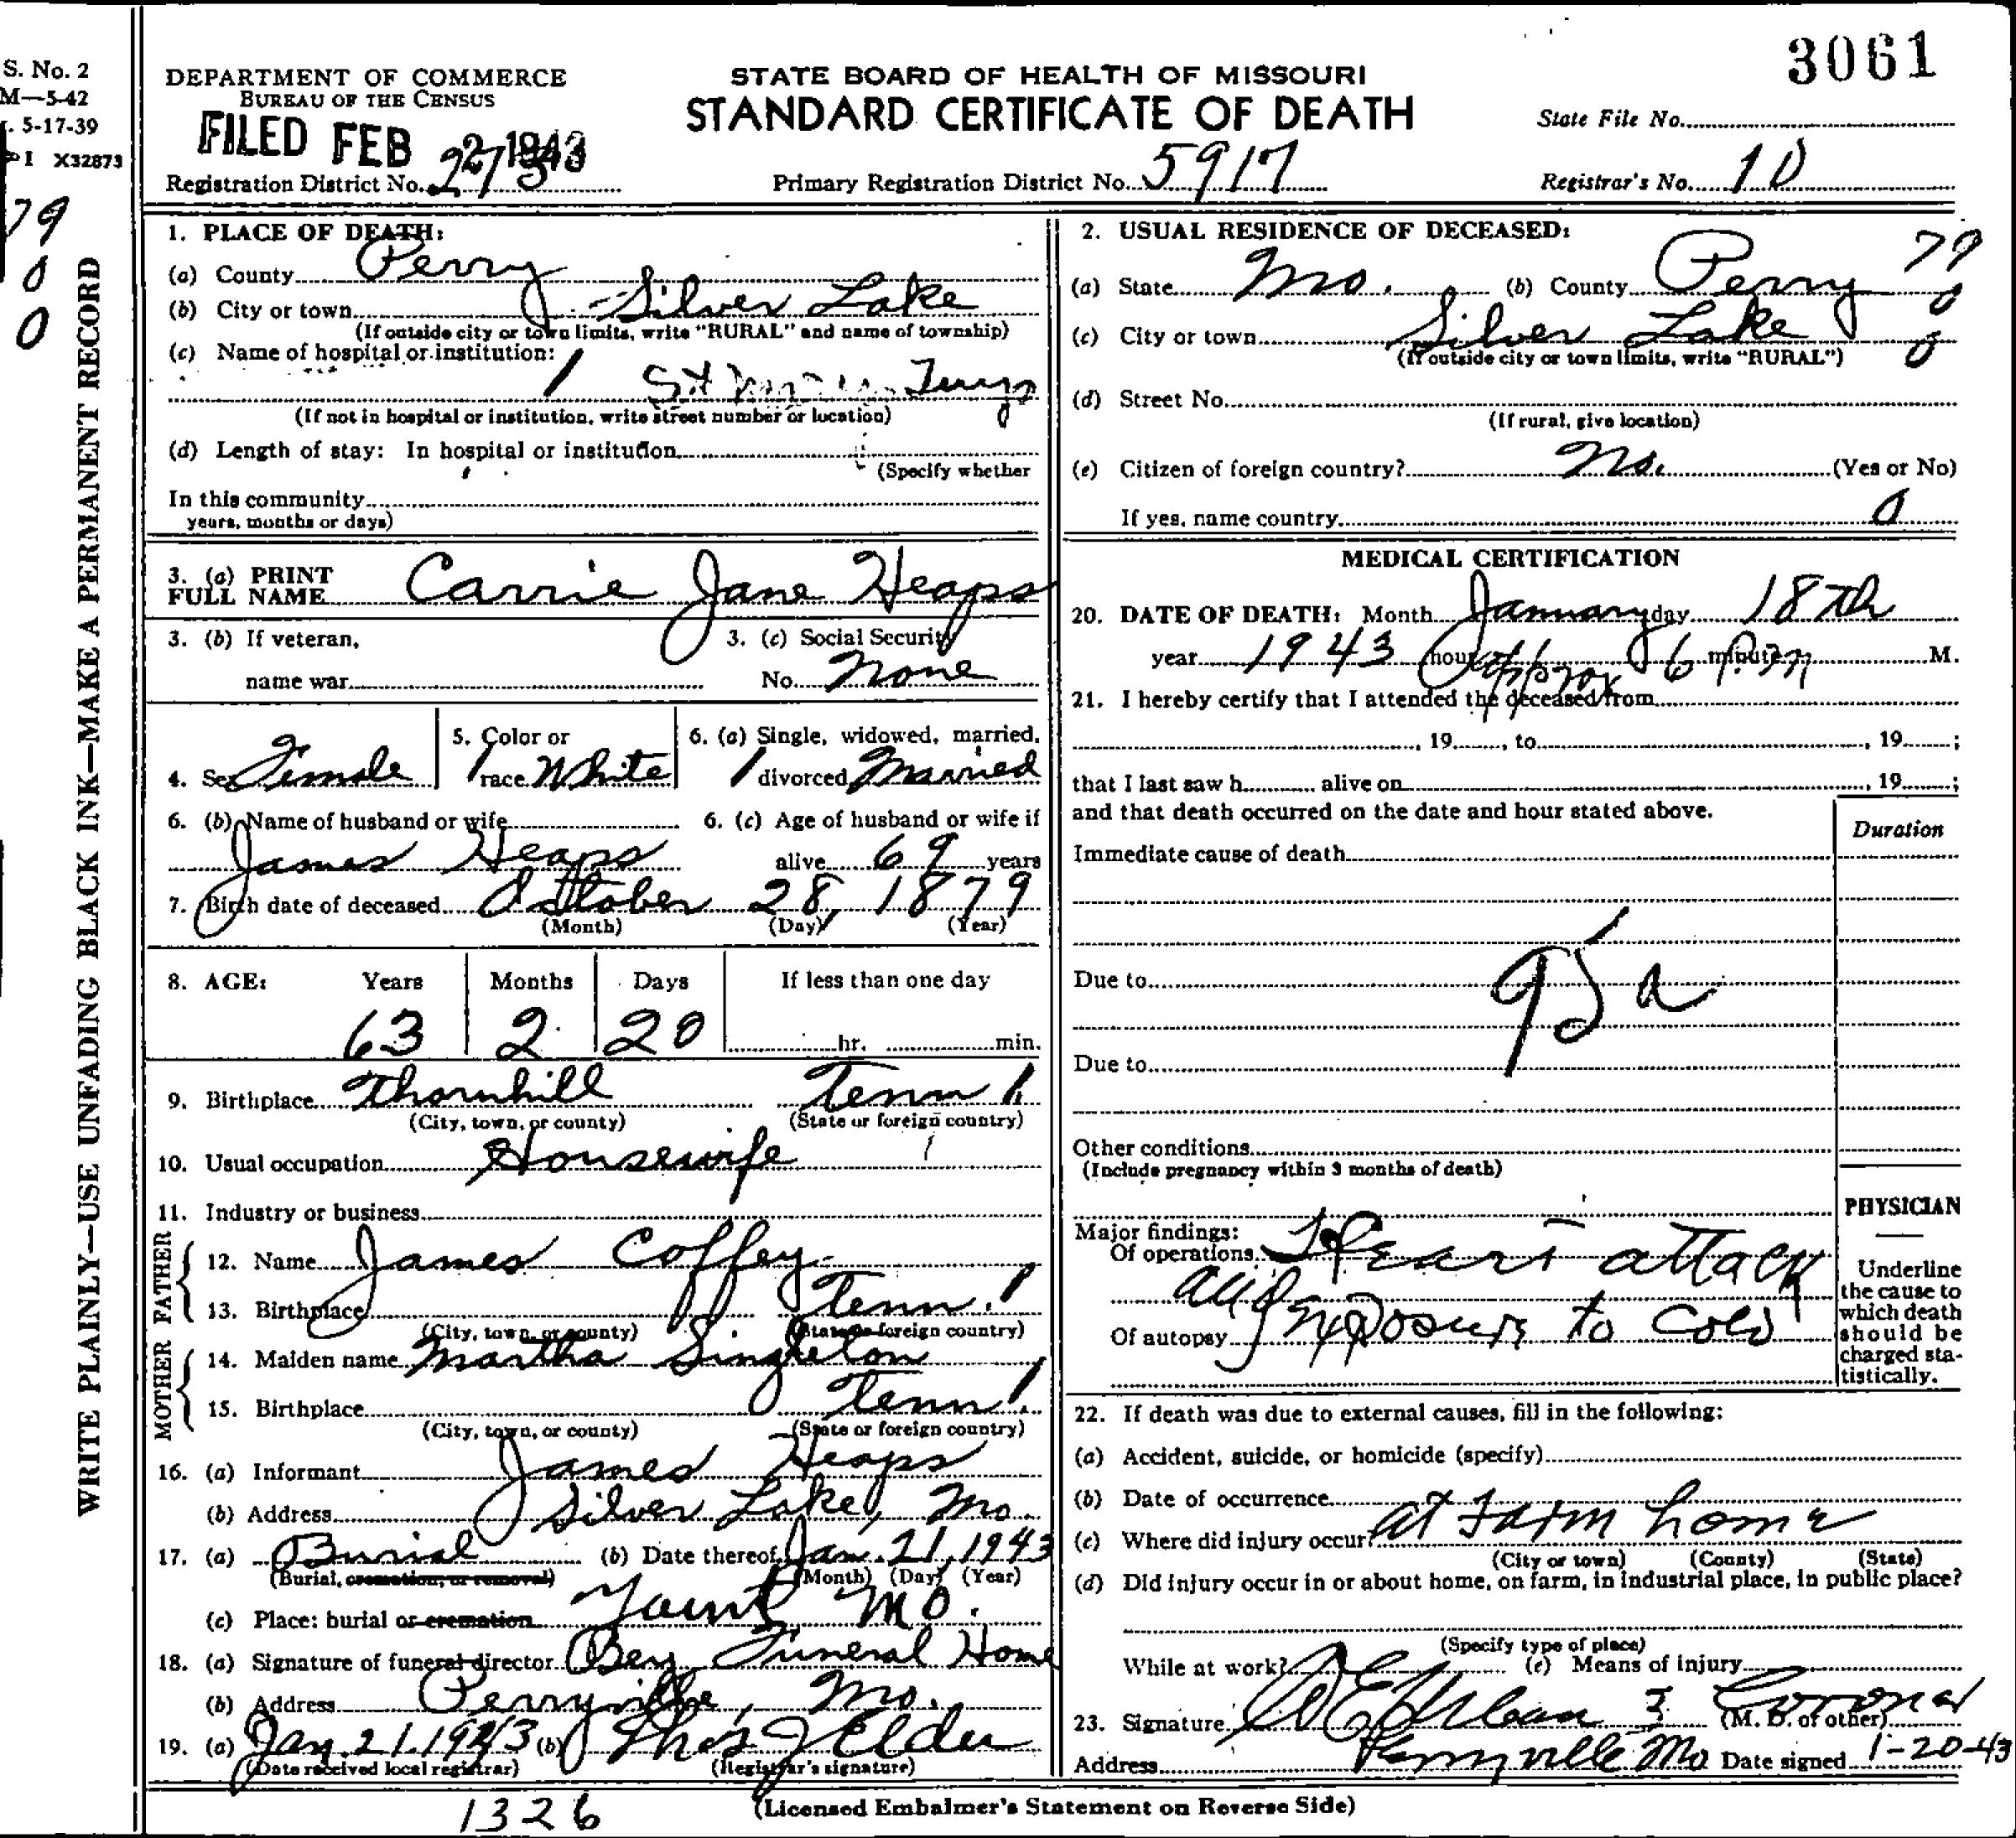 3061
S. No. 2
M—5-42
5-17-39
I X32873
79
0
0
WRITE PLAINLY—USE UNFADING BLACK INK—MAKE A PERMANENT RECORD
DEPARTMENT OF COMMERCE
BUREAU OF THE CENSUS
FILED FEB 2 1943
Registration District No. 273
STATE BOARD OF HEALTH OF MISSOURI
STANDARD CERTIFICATE OF DEATH
Primary Registration District No. 5917
State File No.
Registrar's No. 10
1. PLACE OF DEATH:
(a) County Perry
(b) City or town Silver Lake
(If outside city or town limits, write "RURAL" and name of township)
(c) Name of hospital or institution:
1 St
(If not in hospital or institution, write street number or location)
(d) Length of stay: In hospital or institution
(Specify whether
In this community
years, months or days)
3. (a) PRINT
FULL NAME Carrie Jane Heaps
3. (b) If veteran,
name war
3. (c) Social Security
No. None
4. Sex Female
5. Color or
race White
6. (a) Single, widowed, married,
divorced Married
6. (b) Name of husband or wife
James Heaps
6. (c) Age of husband or wife if
alive 69 years
7. Birth date of deceased October 28, 1879
(Month) (Day) (Year)
8. AGE: Years Months Days If less than one day
63 2 20 hr. min.
9. Birthplace Thornhill Tenn 1
(City, town, or county) (State or foreign country)
10. Usual occupation Housewife
11. Industry or business
FATHER
12. Name James Coffey
13. Birthplace Tenn. 1
(City, town, or county) (State or foreign country)
MOTHER
14. Maiden name Martha Singleton
15. Birthplace Tenn 1
(City, town, or county) (State or foreign country)
16. (a) Informant James Heaps
(b) Address Silver Lake, Mo.
17. (a) Burial (b) Date thereof Jan. 21, 1943
(Burial, cremation, or removal) (Month) (Day) (Year)
(c) Place: burial or cremation Yount Mo.
18. (a) Signature of funeral director Bey Funeral Home
(b) Address Perryville, Mo.
19. (a) Jan. 21. 1943 (b) Thos J Elder
(Date received local registrar) (Registrar's signature)
2. USUAL RESIDENCE OF DECEASED: 79
(a) State Mo. (b) County Perry 0
(c) City or town Silver Lake 0
(If outside city or town limits, write "RURAL")
(d) Street No.
(If rural, give location)
(e) Citizen of foreign country? No. (Yes or No)
If yes, name country 0
MEDICAL CERTIFICATION
20. DATE OF DEATH: Month January day 18th
year 1943 hour Approx 6 P.M minute M.
21. I hereby certify that I attended the deceased from
, 19 , to , 19 ;
that I last saw h alive on , 19 ;
and that death occurred on the date and hour stated above.
Duration
Immediate cause of death
95a
Due to
Due to
Other conditions
(Include pregnancy within 3 months of death)
PHYSICIAN
Underline
the cause to
which death
should be
charged sta-
tistically.
Major findings:
Of operations Heart attack
and
Of autopsy Exposure to cold
22. If death was due to external causes, fill in the following:
(a) Accident, suicide, or homicide (specify)
(b) Date of occurrence
(c) Where did injury occur? At Farm home
(City or town) (County) (State)
(d) Did injury occur in or about home, on farm, in industrial place, in public place?
(Specify type of place)
While at work? (e) Means of injury
23. Signature Coroner
(M. D. or other)
Address Perryville Mo Date signed 1-20-43
1326
(Licensed Embalmer's Statement on Reverse Side)